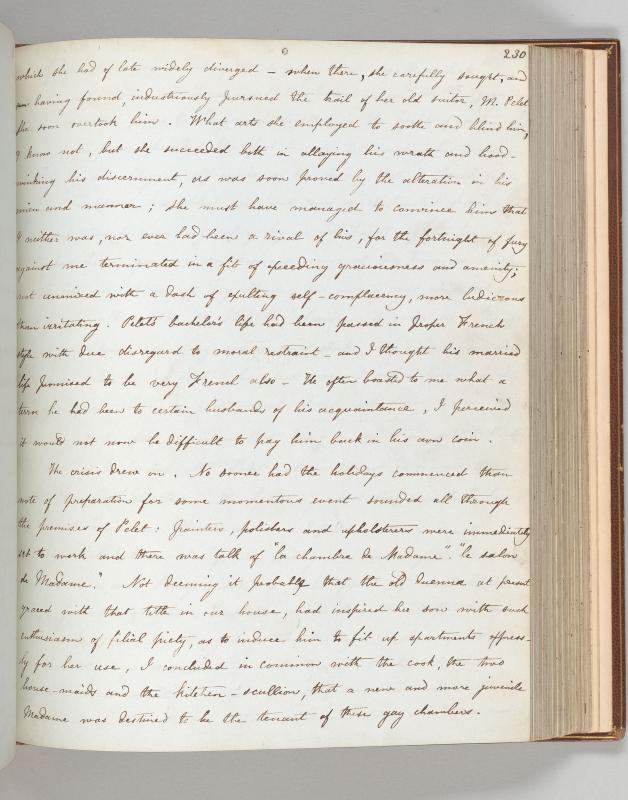 230
which she had of late widely diverged – when there, she carefully sought, and
having found, industriously pursued the trail of her old suitor, M. Pelet
She soon overtook him. What arts she employed to soothe and blind him,
I know not, but she succeeded both in allaying his wrath and hood-
winking his discernment, as was soon proved by the alteration in his
mien and manner; she must have managed to convince him that
I neither was, nor ever had been a rival of his, for the fortnight of fury
against me terminated in a fit of exceeding graciousness and amenity;
not unmixed with a dash of exulting self-complacency, more ludicrous
than irritating. Pelet's bachelor's life had been passed in proper French
style with due disregard to moral restraint – and I thought his married
life promised to be very French also – He often boasted to me what a
terror he had been to certain husbands of his acquaintance, I perceived
it would not now be difficult to pay him back in his own coin.
The crisis drew on. No sooner had the holidays commenced than
note of preparation for some momentous event sounded all through
the premises of Pelet: painters, polishers and upholsterers were immediately
set to work and there was talk of "la chambre de Madame". "le salon
de Madame." Not deeming it probable that the old duenna at present
graced with that title in our house, had inspired her son with such
enthusiasm of filial piety, as to induce him to fit up apartments express-
ly for her use, I concluded in common with the cook, the two
house-maids and the kitchen-scullion, that a new and more juvenile
Madame was destined to be the tenant of these gay chambers.